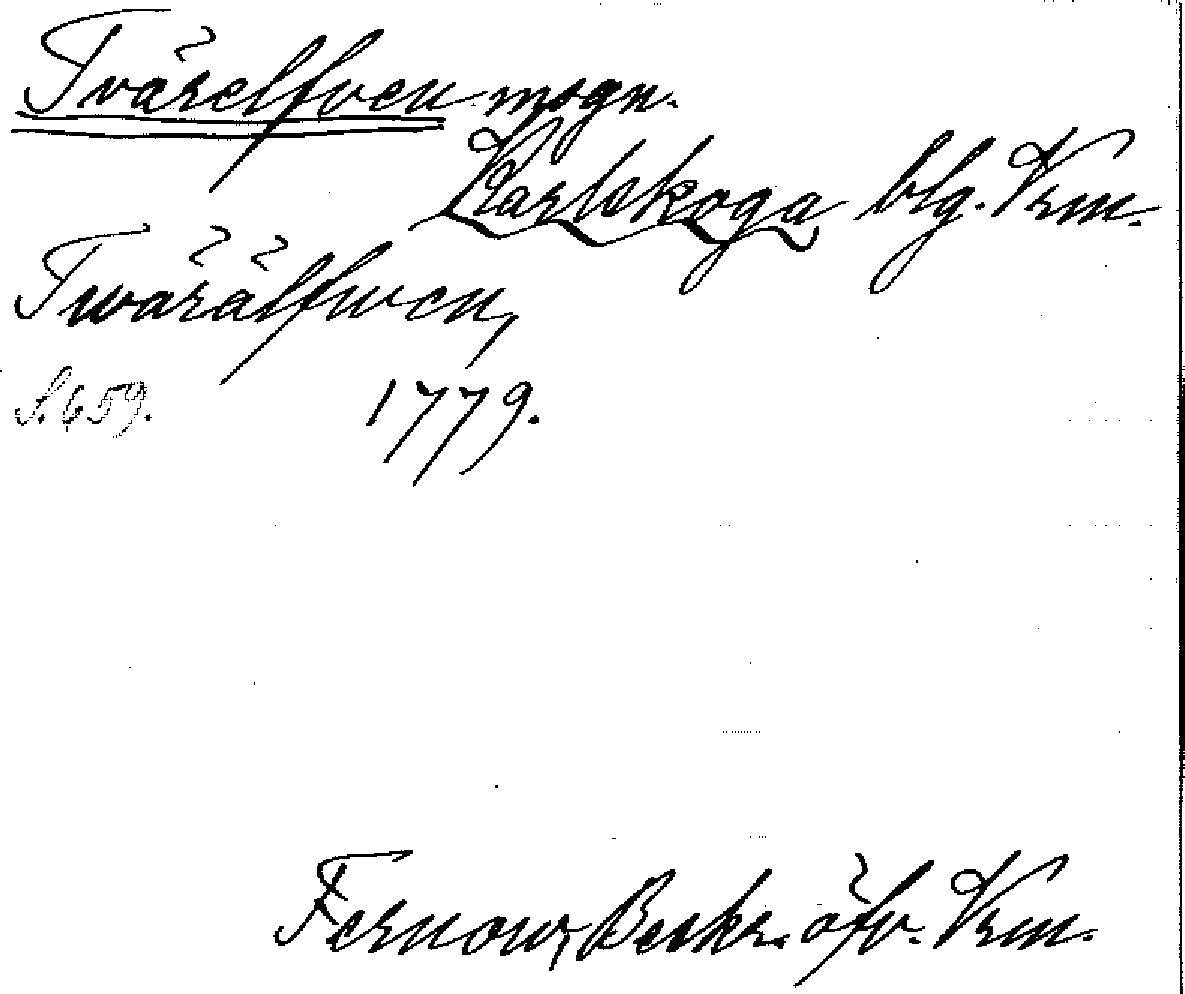 Tvärelfven mogn.
Karlskoga blg. Vrm.
Twärälfwen,
S. 659. 1779.
Fernow, Beskr. öfv. Vrm.